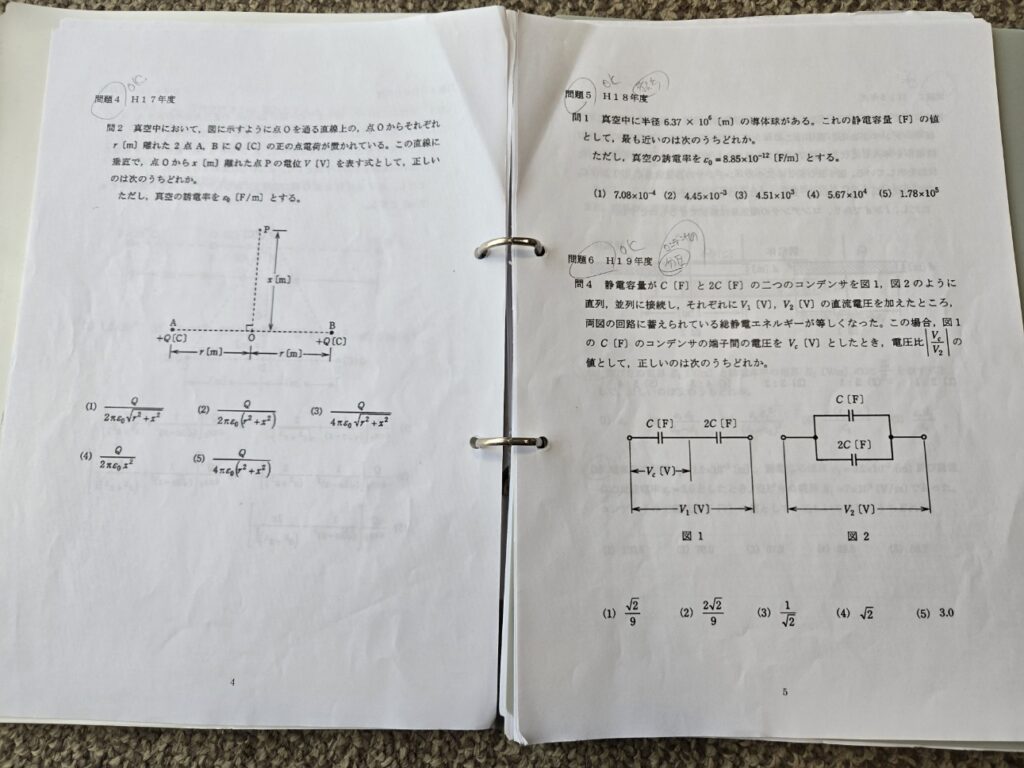 問題4 H17年度
OK
問2 真空中において，図に示すように点Oを通る直線上の，点Oからそれぞれ
r〔m〕離れた2点A，BにQ〔C〕の正の点電荷が置かれている。この直線に
垂直で，点Oからx〔m〕離れた点Pの電位V〔V〕を表す式として，正しい
のは次のうちどれか。
ただし，真空の誘電率をε₀〔F/m〕とする。
P
x〔m〕
A O B
+Q〔C〕 +Q〔C〕
r〔m〕 r〔m〕
(1) Q/(2πε₀√(r²+x²)) (2) Q/(2πε₀(r²+x²)) (3) Q/(4πε₀√(r²+x²))
(4) Q/(2πε₀x²) (5) Q/(4πε₀(r²+x²))
4
問題5 H18年度
OK
問1 真空中に半径 6.37 × 10⁶〔m〕の導体球がある。これの静電容量〔F〕の値
として，最も近いのは次のうちどれか。
ただし，真空の誘電率をε₀=8.85×10⁻¹²〔F/m〕とする。
(1) 7.08×10⁻⁴ (2) 4.45×10⁻³ (3) 4.51×10³ (4) 5.67×10⁴ (5) 1.78×10⁵
問題6 H19年度
OK
コンデンサの
分圧
問4 静電容量がC〔F〕と2C〔F〕の二つのコンデンサを図1，図2のように
直列，並列に接続し，それぞれにV₁〔V〕，V₂〔V〕の直流電圧を加えたところ，
両図の回路に蓄えられている総静電エネルギーが等しくなった。この場合，図1
のC〔F〕のコンデンサの端子間の電圧をV_c〔V〕としたとき，電圧比|V_c/V₂|の
値として，正しいのは次のうちどれか。
C〔F〕 2C〔F〕
V_c〔V〕
V₁〔V〕
図1
C〔F〕
2C〔F〕
V₂〔V〕
図2
(1) √2/9 (2) 2√2/9 (3) 1/√2 (4) √2 (5) 3.0
5